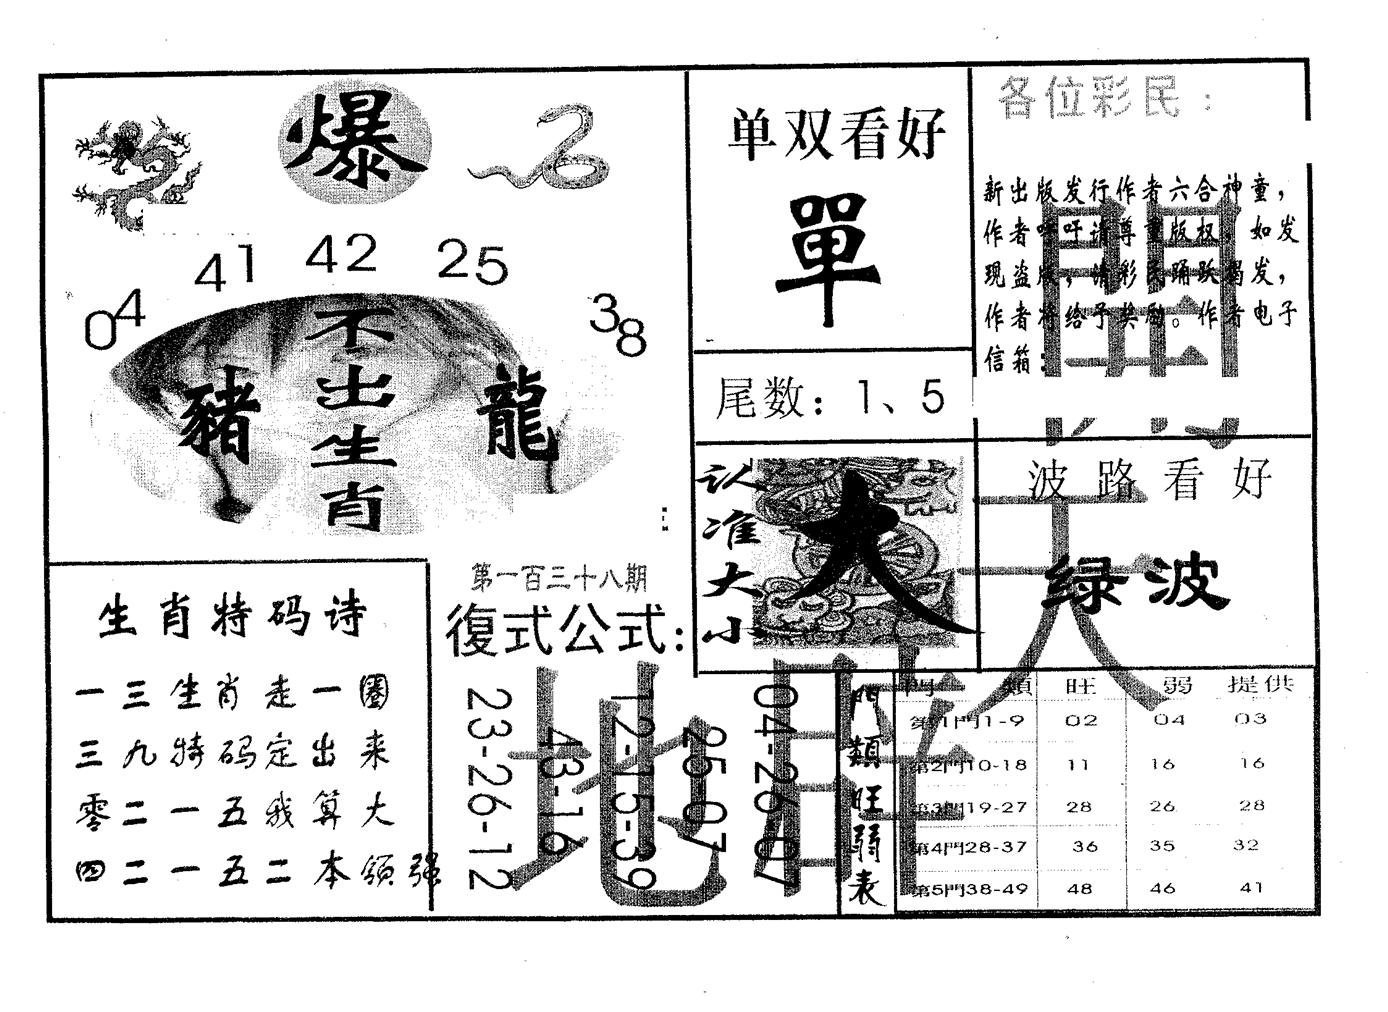 爆
04 41 42 25 38
不出生肖
豬
龍
单双看好
單
尾数：1、5
各位彩民：
新出版发行作者六合神童，
作者呼吁请尊重版权，如发
现盗版，请彩民踊跃揭发，
作者将给予奖励。作者电子
信箱：
认准大小
大
波路看好
绿波
生肖特码诗
一三生肖走一圈
三九特码定出来
零二一五我算大
四二一五二本领强
第一百三十八期
復式公式：
23-26-12
43-16
12-15-39
25-07
04-26-07
門類旺弱表
門類 旺 弱 提供
第1門1-9 02 04 03
第2門10-18 11 16 16
第3門19-27 28 26 28
第4門28-37 36 35 32
第5門38-49 48 46 41
天
地